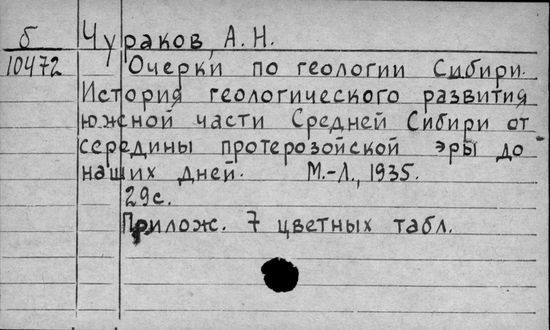 б Чураков, А. Н.
10472 Очерки по геологии Сибири.
История геологического развития
южной части Средней Сибири от
середины протерозойской эры до
наших дней. М.-Л., 1935.
29с.
Прилож. 7 цветных табл.